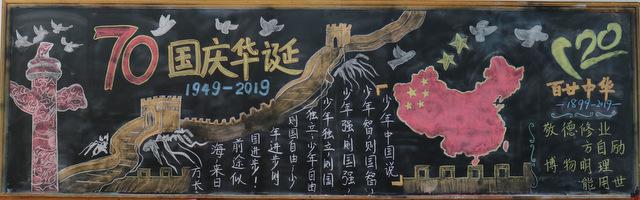 70
国庆华诞
1949-2019
少年中国说
少年智则国智，
少年强则国强，
少年独立则国
独立，少年自由
则国自由，少
年进步则
国进步！
前途似
海，来日
方长
120
百廿中华
1899-2019
敬德修业
方自励
博物明理
能用世